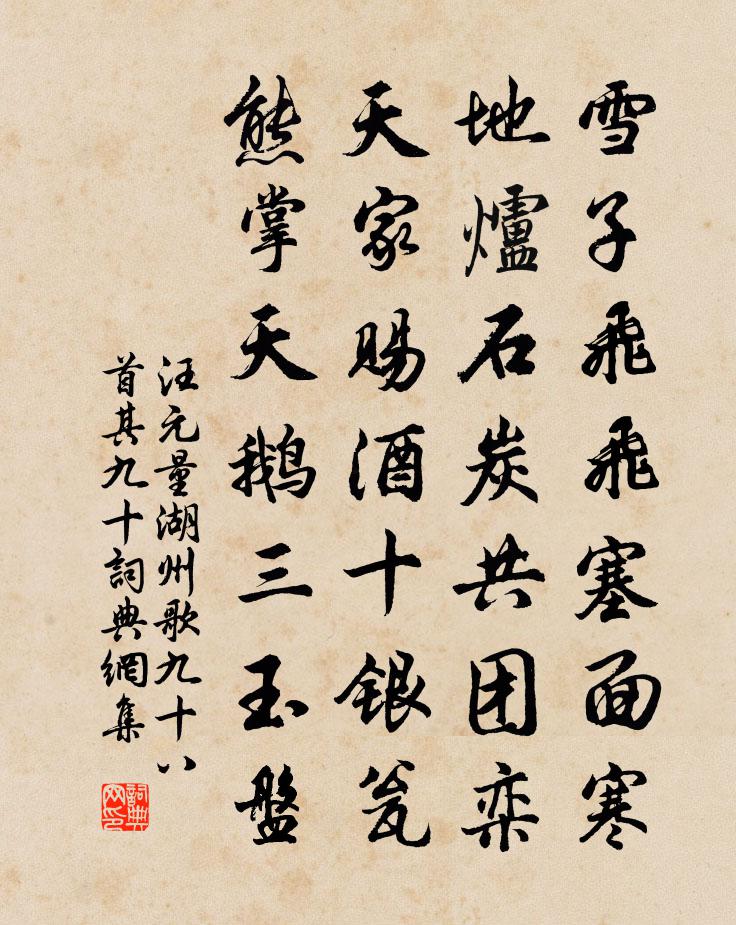 雪子飛飛塞面寒
地爐石炭共团栾
天家賜酒十銀瓮
熊掌天鹅三玉盤
汪元量湖州歌九十八
首其九十詞典網集
詞典网印